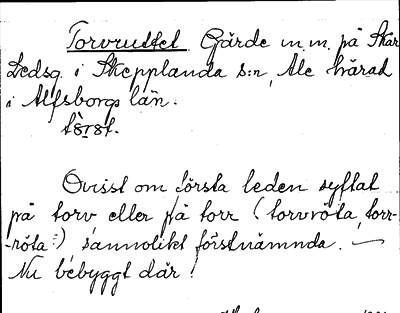 Torvrustet Gärde m.m. på Skår
Ledsg. i Skepplanda s:n, Ale härad
i Älfsborgs län.
Ovisst om första leden syftat
på torv eller på torr (torvröta, torr-
-röta?) sannolikt förstnämnda. —
Nu bebyggt där!